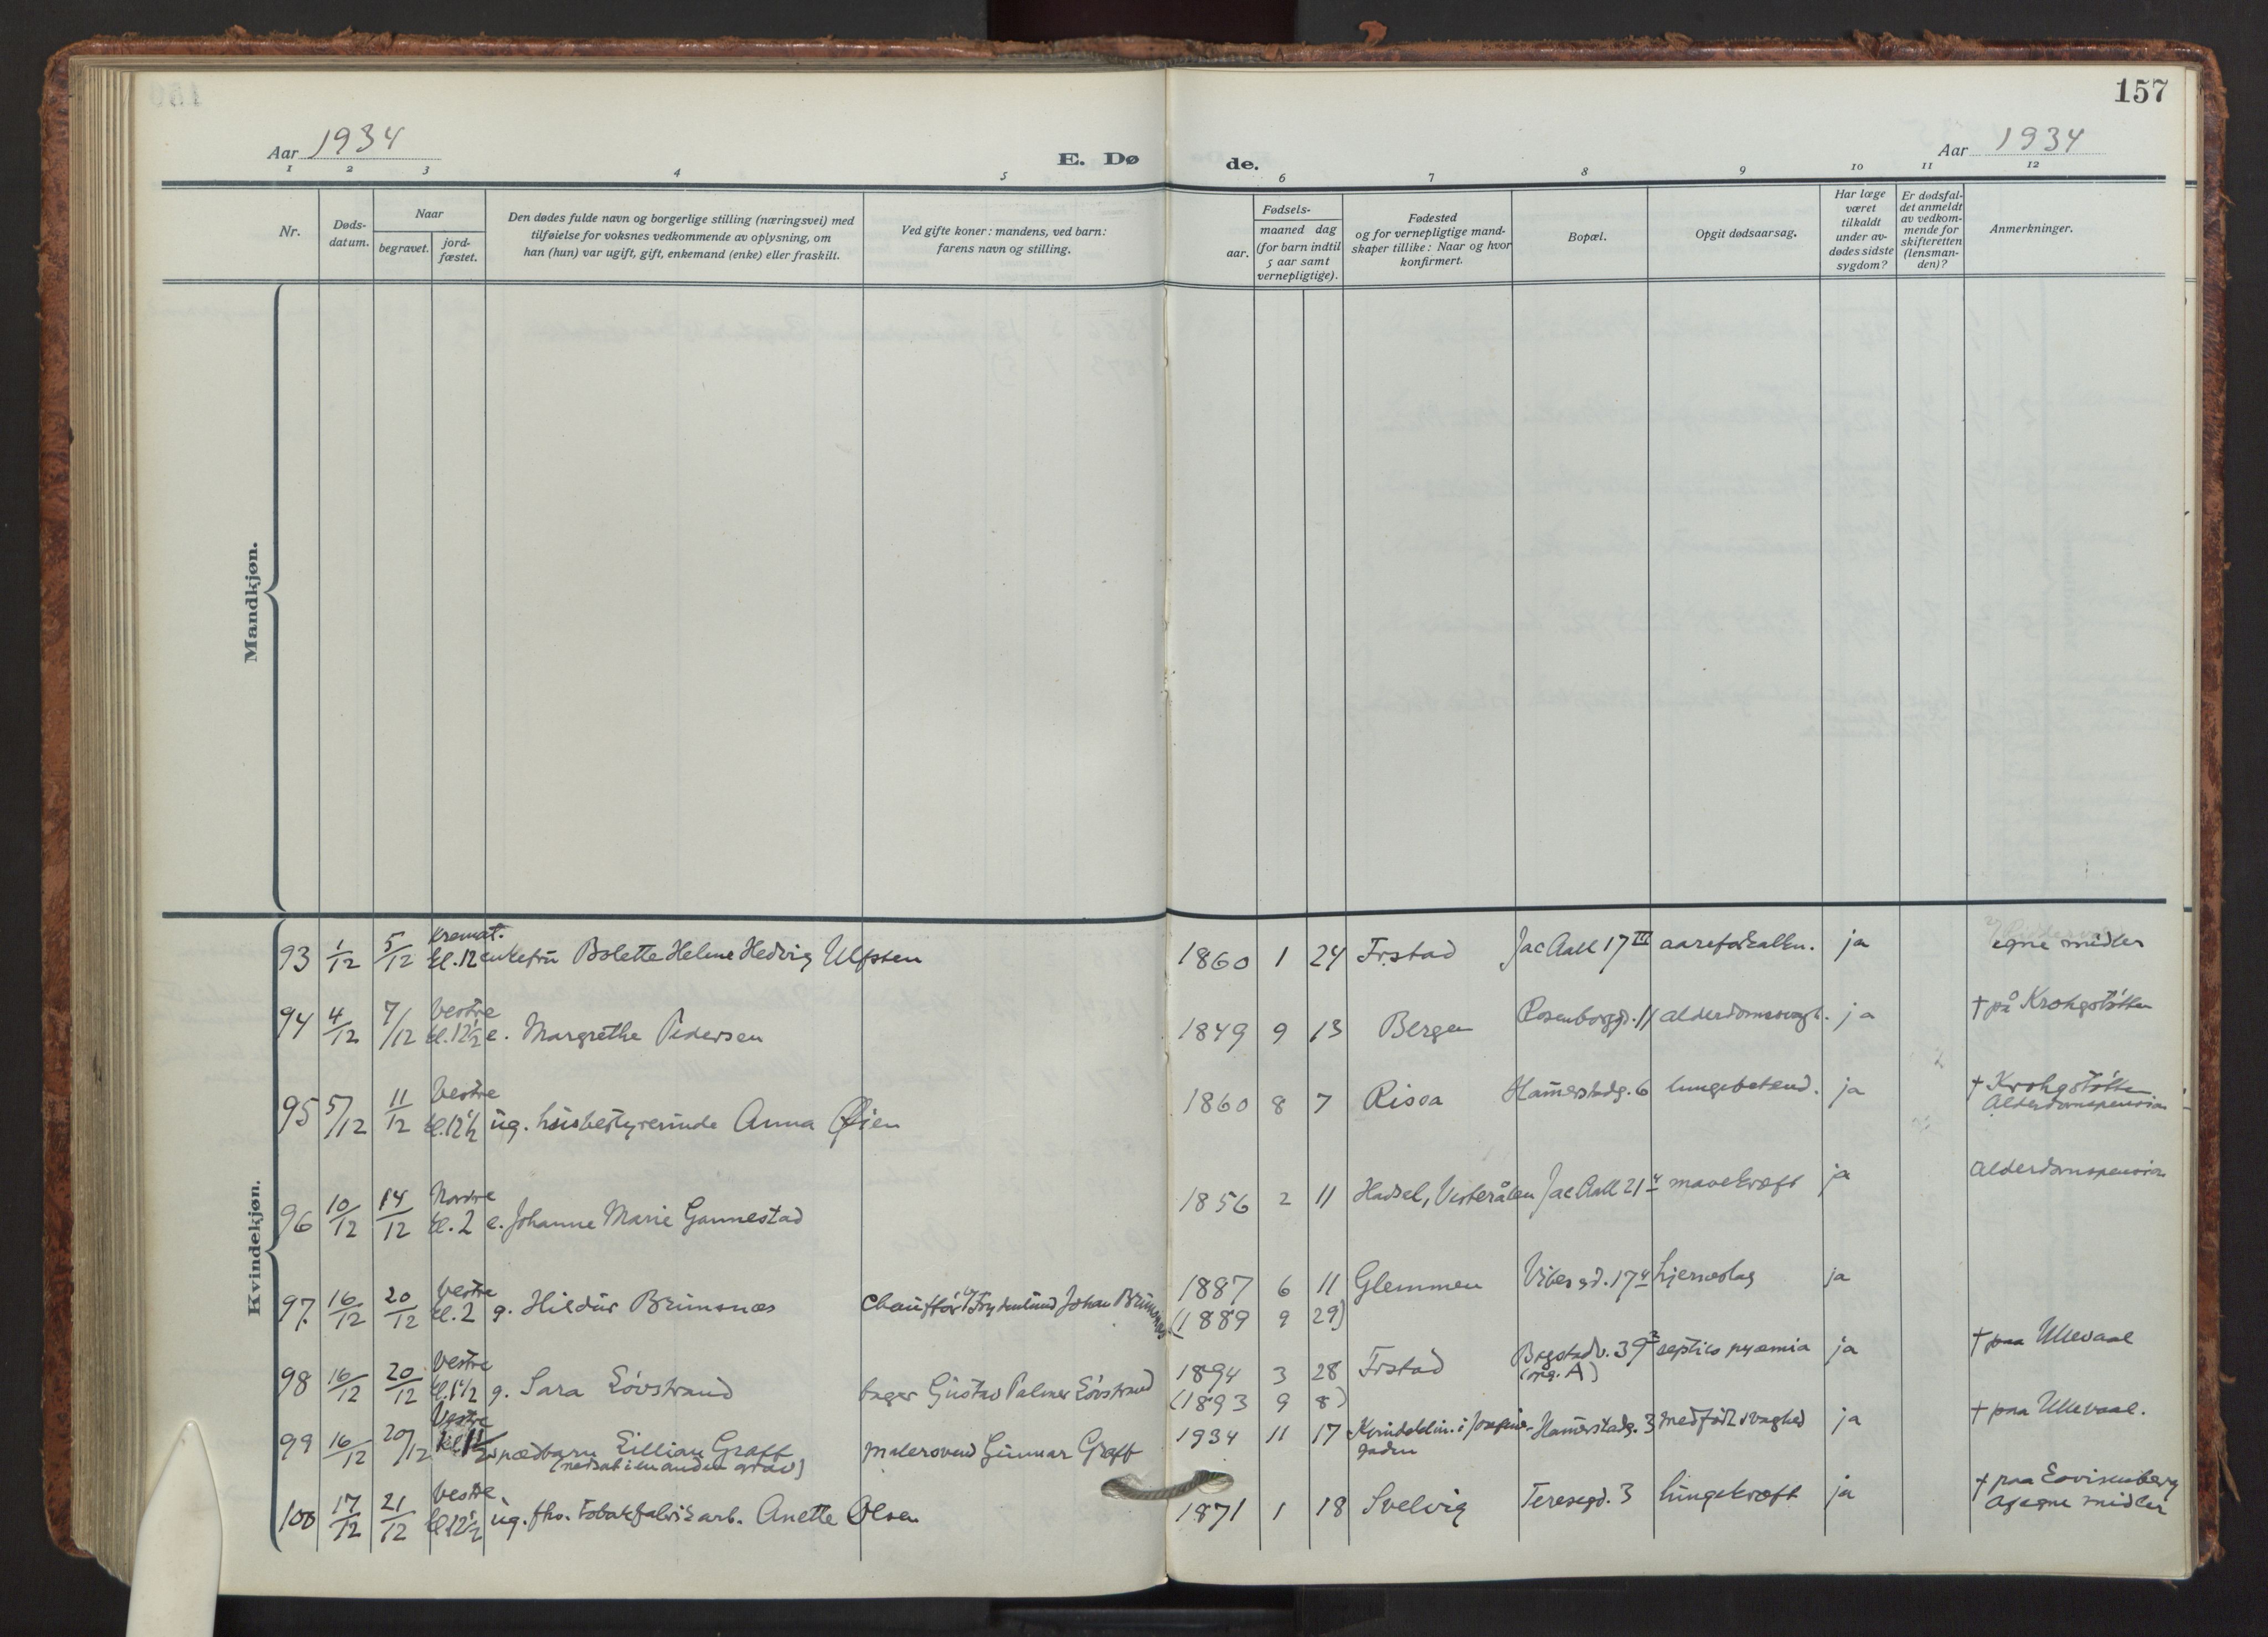 157
Aar 1934
E. Dø
de.
Aar 1934
1 2 3 4 5 6 7 8 9 10 11 12
Nr.
Døds-
datum.
Naar
begravet.
jord-
fæstet.
Den dødes fulde navn og borgerlige stilling (næringsvei) med
tilføielse for voksnes vedkommende av oplysning, om
han (hun) var ugift, gift, enkemand (enke) eller fraskilt.
Ved gifte koner: mandens, ved barn:
farens navn og stilling.
Fødsels-
aar.
maaned dag
(for barn indtil
5 aar samt
vernepligtige).
Fødested
og for vernepligtige mand-
skaper tillike: Naar og hvor
konfirmert.
Bopæl.
Opgit dødsaarsag.
Har læge
været
tilkaldt
under av-
dødes sidste
sygdom?
Er dødsfal-
det anmeldt
av vedkom-
mende for
skifteretten
(lensman-
den)?
Anmerkninger.
Mandkjøn.
Kvindekjøn.
Kremat.
93 1/12 5/12 kl. 12 enkefru Bolette Helene Hedvig Ulfsten 1860 1 24 Fr.stad Jac Aall 17 III aareforkalkn. ja egne midler
Vestre
94 4/12 7/12 kl. 12½ e. Margrethe Pedersen 1849 9 13 Bergen Rosenborggd. 11 alderdomssvagh. ja † på Krohgstøtten
Vestre
95 5/12 11/12 kl. 12½ ug. husbestyrerinde Anna Øien 1860 8 7 Rissa Hamerstadg. 6 lungebetend. ja † Krohgstøtten
Alderdomspension
Nordre
96 10/12 14/12 kl. 2 e. Johanne Marie Gannestad 1856 2 11 Hadsel, Vesterålen Jac Aall 21 4 mavekræft ja Alderdomspension
Vestre
97. 16/12 20/12 kl. 2 g. Hildur Brunsnæs Chauffør Frydenlund Johan Brunsnæs 1887 6 11 Glemmen Vibesgd. 17 4 hjerneslag ja
(1889 9 29)
Vestre
98 16/12 20/12 kl. 1½ g. Sara Løvstrand bager Gustav Palmer Løvstrand 1894 3 28 Fr.stad Bogstadv. 39 3 septico pyæmia ja † paa Ullevaal
(1893 9 8) (opg. A)
Vestre
99 16/12 20/12 kl. 1½ spædbarn Lillian Graff malersvend Gunnar Graff 1934 11 17 Kvindeklin. i Josefine- Hamerstadg. 3 medfødt svaghed ja † paa Ullevaal.
(nedsat i en anden grav) gaden
Vestre
100 17/12 21/12 kl. 12½ ug. fhv. tobakfabrikarb. Anette Olsen 1871 1 18 Svelvig Teresegd. 3 lungekræft ja † paa Lovisenberg
af egne midler